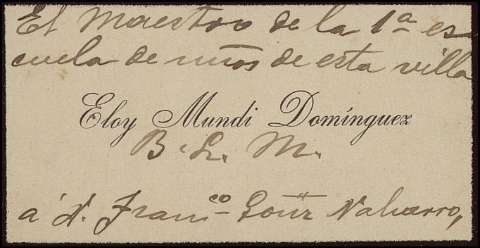 El Maestro de la 1ª es-
cuela de niños de esta villa
Eloy Mundi Domínguez
B. L. M.
á D. Franᶜᵒ Navarro,